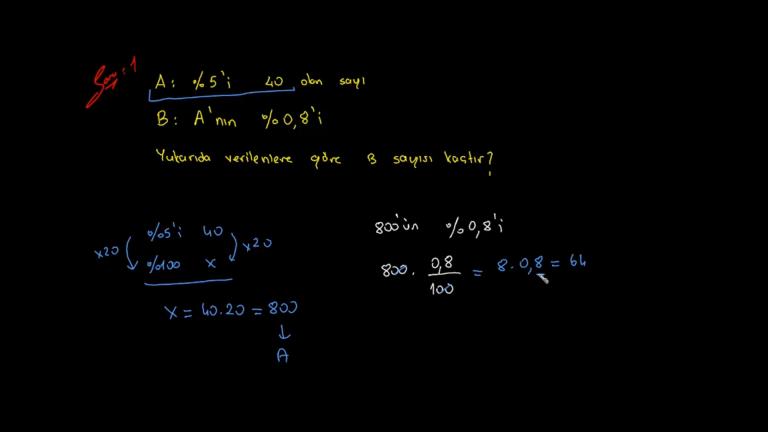 Soru:1
A: %5'i 40 olan sayı
B: A'nın %0,8'i
Yukarıda verilenlere göre B sayısı kaçtır?
%5'i 40
x20 x20
%100 x
x = 40.20 = 800
A
800'ün %0,8'i
800 . 0,8/100 = 8.0,8 = 64